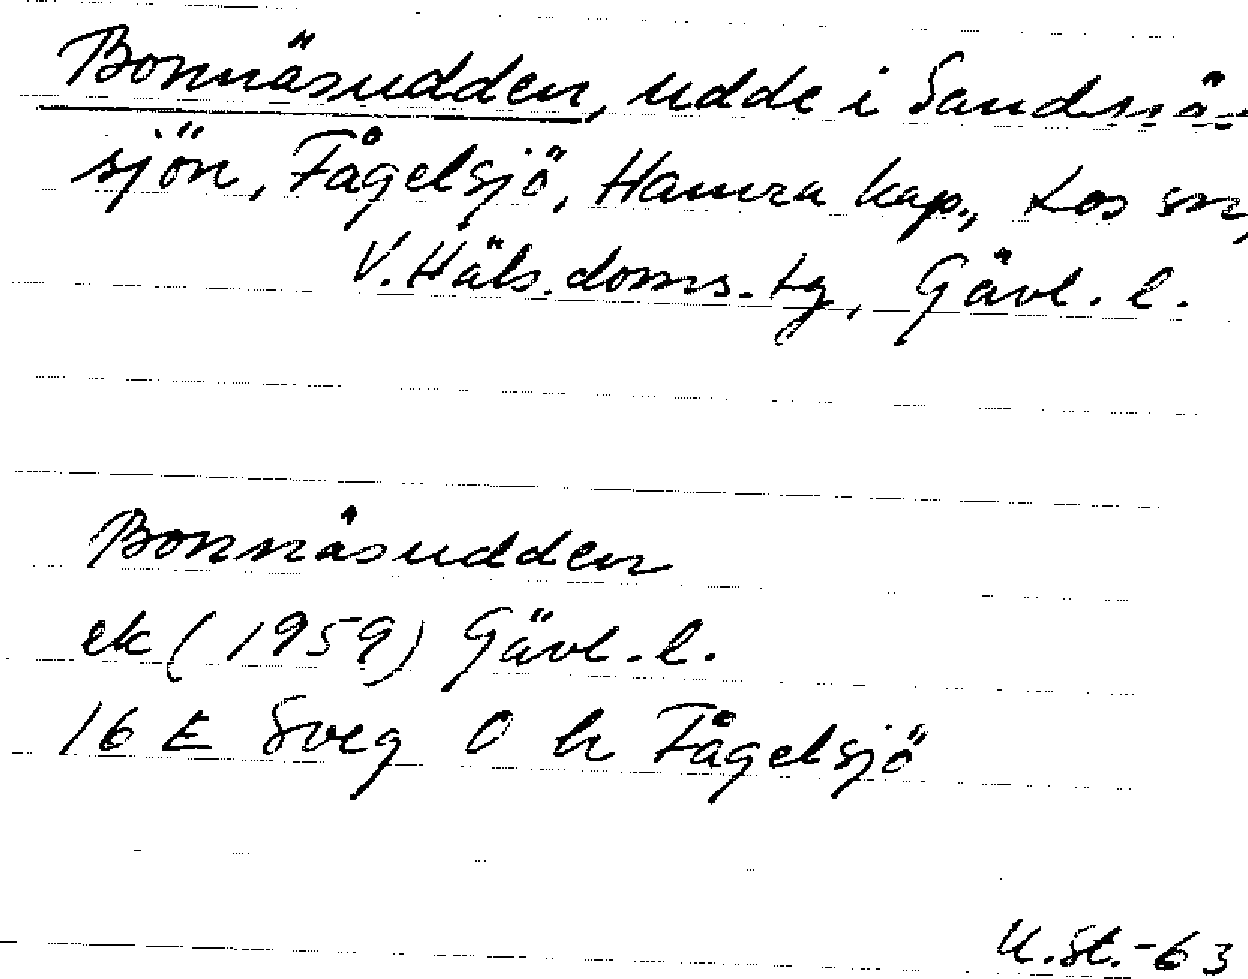 Bonnäsudden, udde i Sandnä-
sjön, Fågelsjö, Hamra kap., Los sn,
V. Häls. doms. tg, Gävl. l.
Bonnäsudden
ek (1959) Gävl. l.
16 E Sveg O h Fågelsjö
U. St. -63